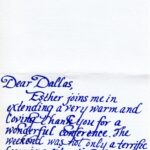 Dear Dallas,
Esther joins me in
extending a very warm and
loving thank you for a
wonderful conference. The
weekend was not only a terrific